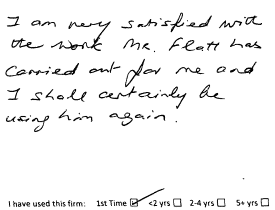 I am very satisfied with
the work Mr. Flatt has
carried out for me and
I shall certainly be
using him again.
I have used this firm: 1st Time ☑ <2 yrs ☐ 2-4 yrs ☐ 5+ yrs ☐